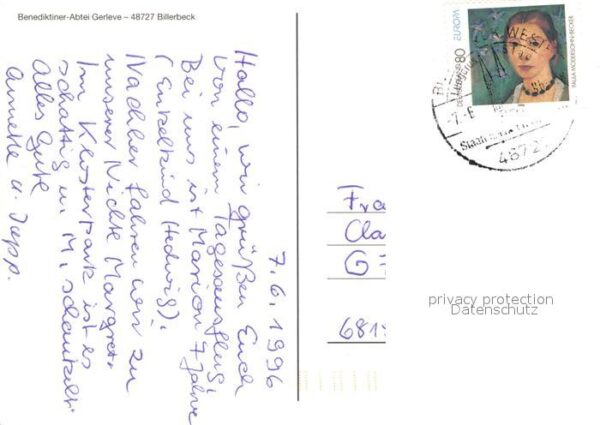 Benediktiner-Abtei Gerleve – 48727 Billerbeck
7.6.1996
Hallo, wir grüßen Euch
von einem Tagesausflug,
Bei uns ist Marion 7 Jahre
(Enkelkind Hedwig).
Nachher fahren wir zu
unserer Nichte Margret.
Im Klosterpark ist es
schattig u. M. schaukelt
Alles Gute
Annette u. Jupp.
EUROPA
80
PAULA MODERSOHN-BECKER
48727
Fra
Cla
G
681
privacy protection
Datenschutz